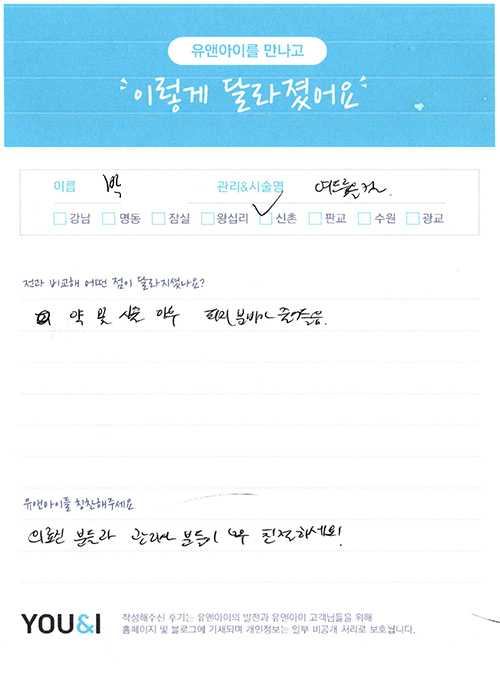 유앤아이를 만나고
이렇게 달라졌어요
이름 박 관리&시술명 여드름
강남 명동 잠실 왕십리 신촌 판교 수원 광교
전과 비교해 어떤 점이 달라지셨나요?
약 및 시술 이후 피지 분비가 줄어들음.
유앤아이를 칭찬해주세요
의료진 분들과 관리사 분들이 너무 친절하세요!
YOU&I
작성해주신 후기는 유앤아이의 발전과 유앤아이 고객님들을 위해
홈페이지 및 블로그에 기재되며 개인정보는 일부 비공개 처리로 보호됩니다.